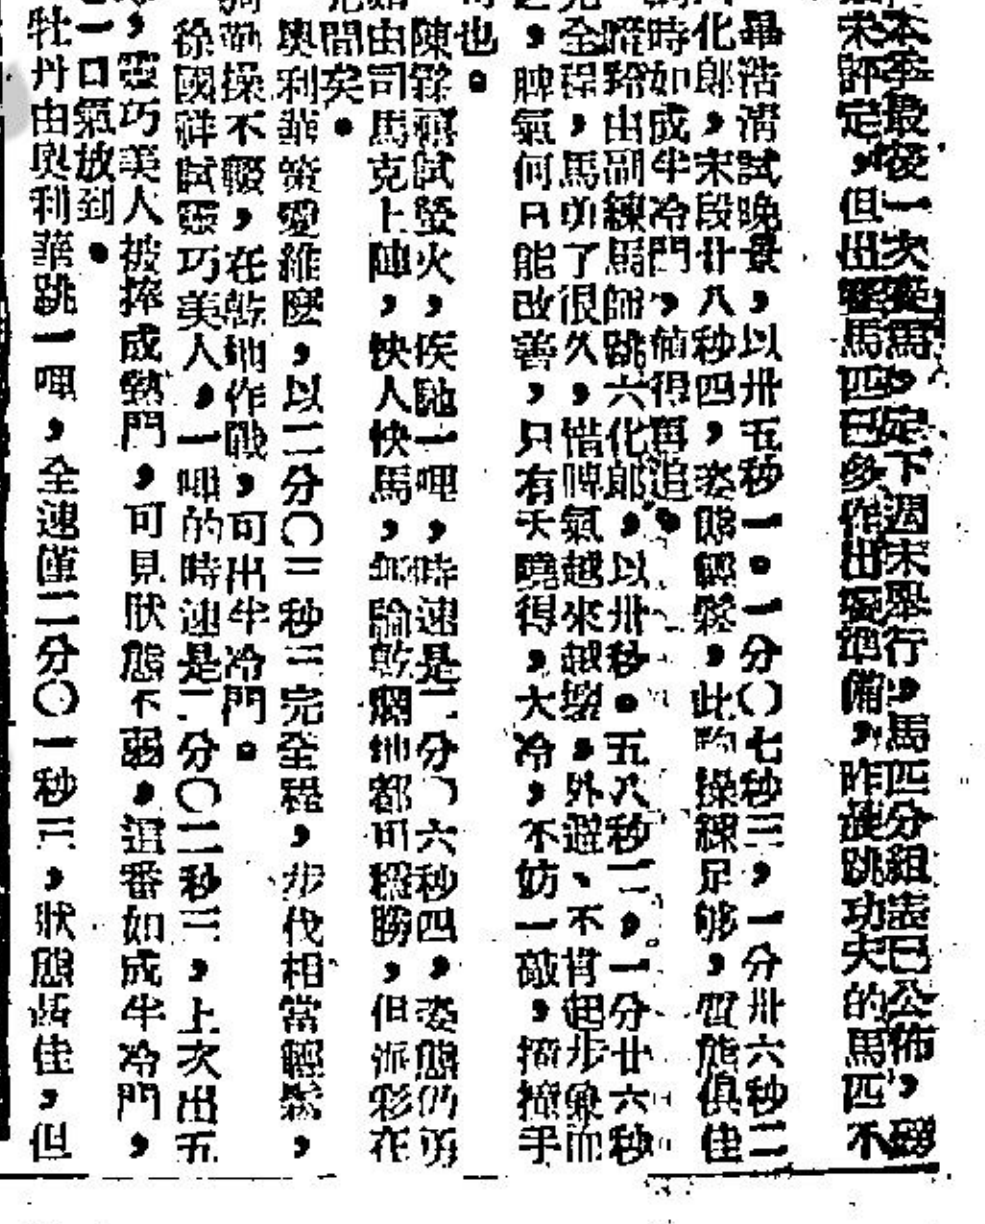 本季最後一次賽馬，定下週末舉行，馬匹分組表已公佈，磅
未評定，但出賽馬匹已多作出賽準備，昨晨跳功夫的馬匹不
畢浩清試晚景，以卅五秒一。一分〇七秒三，一分卅六秒二
化郎，末段廿八秒四，姿態輕鬆，此駒操練足够，質能俱佳
時如成半冷門，值得再追。
蹄鈴由副練馬師跳六化郎，以卅秒。五八秒二，一分廿六秒
全程，馬房了很久，惜脾氣越來越壞，外避、不肯起步象而
，脾氣何日能改善，只有天曉得，大冷，不妨一敲，撞撞手
也。
陳霖禧試螢火，疾馳一哩，時速是二分〇六秒四，姿態仍勇
由司馬克上陣，快人快馬，無論乾爛地都可穩勝，但派彩在
間矣。
奧利華策愛維麼，以二分〇三秒三完全程，步伐相當輕鬆，
駒操不輟，在乾地作戰，可出半冷門。
徐國祥試靈巧美人，一哩的時速是二分〇二秒三，上次出五
，靈巧美人被捧成熱門，可見狀態不弱，這番如成半冷門，
一口氣放到。
牡丹由奧利華跳一哩，全速僅二分〇一秒三，狀態甚佳，但